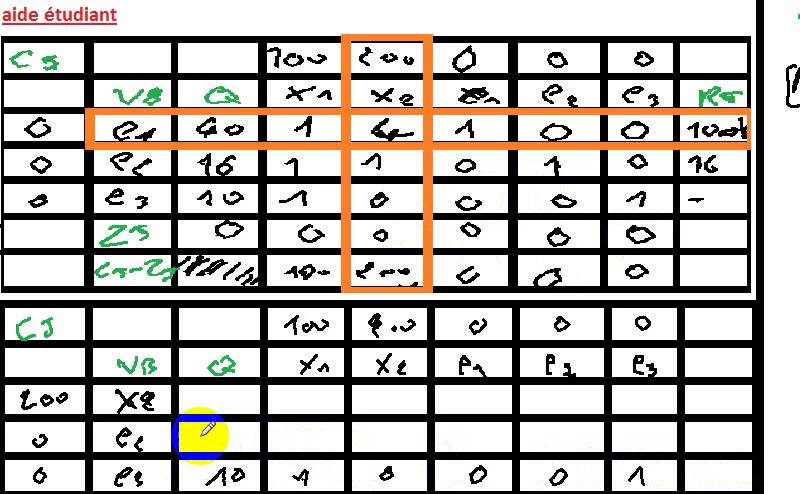 aide étudiant
CJ 100 200 0 0 0
VB Q X1 X2 e2 e3
0 e1 40 1 1 0 0
0 16 1 1 0 1 0 16
0 e3 10 1 0 0 0 1 -
ZJ 0 0 0 0 0 0
CJ-ZJ 100 200 0 0 0
CJ 100 200 0 0 0
VB Q X1 X2 e1 e2 e3
200 X2
0 e2
0 e3 10 1 0 0 0 1